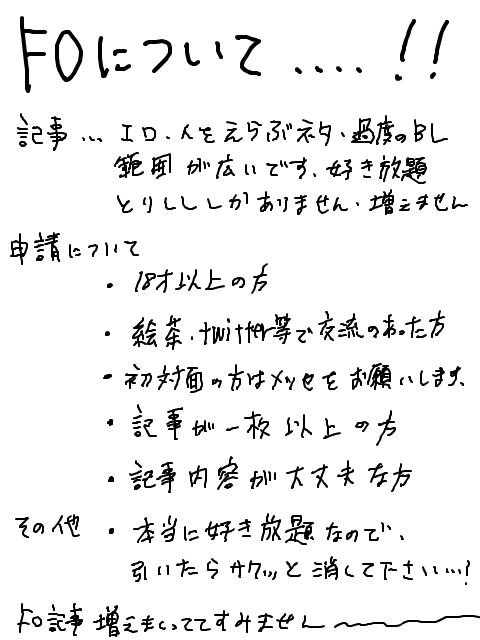 FOについて....!!
記事...エロ・人をえらぶネタ・過度のBL
範囲が広いです、好き放題
とりしししかありません・増えません
申請について
・18才以上の方
・絵茶・twitter等で交流のあった方
・初対面の方はメッセをお願いします、
・記事が一枚以上の方
・記事内容が大丈夫な方
その他・本当に好き放題なので、
引いたらサクッと消して下さい...!
FO記事増えまくっててすみません